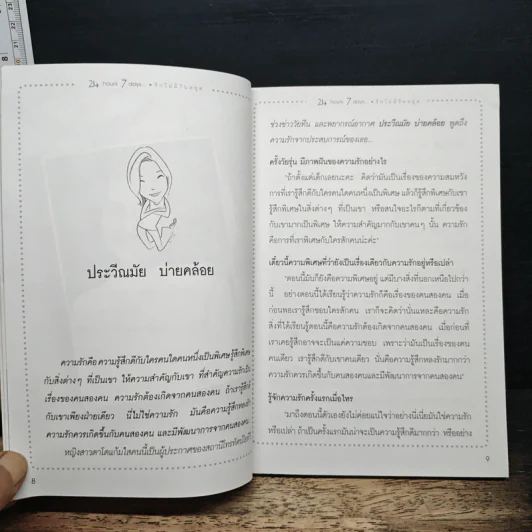 24 hours 7 days • รักไม่มีวันหยุด
ประวีณมัย บ่ายคล้อย
ความรักคือ ความรู้สึกดีกับใครคนใดคนหนึ่งเป็นพิเศษ รู้สึกพิเศษ
กับสิ่งต่างๆ ที่เป็นเขา ให้ความสำคัญกับเขา ที่สำคัญความรักเป็น
เรื่องของคนสองคน ความรักต้องเกิดจากคนสองคน ถ้าเรารู้สึกดี
กับเขาเพียงฝ่ายเดียว นี่ไม่ใช่ความรัก มันคือความรู้สึกหลงรัก
ความรักควรเกิดขึ้นกับคนสองคน และมีพัฒนาการจากคนสองคน
หญิงสาวตาโตแก้มใสคนนี้เป็นผู้ประกาศของสถานีโทรทัศน์
8
24 hours 7 days • รักไม่มีวันหยุด
ช่วงข่าววัยทีน และพยากรณ์อากาศ ประวีณมัย บ่ายคล้อย พูดถึง
ความรักจากประสบการณ์ของเธอ...
ครั้งวัยรุ่น มีภาพฝันของความรักอย่างไร
"ถ้าตั้งแต่เด็กเลยนะคะ คิดว่ามันเป็นเรื่องของความสมหวัง
การที่เรารู้สึกดีกับใครคนใดคนหนึ่งเป็นพิเศษ แล้วก็รู้สึกพิเศษกับเขา
รู้สึกพิเศษในสิ่งต่างๆ ที่เป็นเขา หรือสนใจอะไรก็ตามที่เกี่ยวข้อง
กับเขามากเป็นพิเศษ ให้ความสำคัญมากกับเขาคนๆ นั้น ความรัก
คือการที่เราพิเศษกับใครสักคนน่ะค่ะ"
เดี๋ยวนี้ความพิเศษที่ว่ายังเป็นเรื่องเดียวกับความรักอยู่หรือเปล่า
"ตอนนี้มันก็ยังคือความพิเศษอยู่ แต่มีบางสิ่งที่นอกเหนือไปกว่า
นี้ อย่างตอนนี้ได้เรียนรู้ว่าความรักก็คือเรื่องของคนสองคน เมื่อ
ก่อนพอเรารู้สึกชอบใครสักคน เราก็จะคิดว่านั่นแหละคือความรัก
สิ่งที่ได้เรียนรู้ตอนนี้คือความรักต้องเกิดจากคนสองคน เมื่อก่อนที่
เราเคยรู้สึกอาจจะเป็นแค่ความชอบ เพราะว่ามันเป็นเรื่องของคน
คนเดียว เรารู้สึกดีกับเขาคนเดียว นั่นคือความรู้สึกหลงรักมากกว่า
ความรักควรเกิดขึ้นกับคนสองคนและมีพัฒนาการจากคนสองคน"
รู้จักความรักครั้งแรกเมื่อไหร่
"มาถึงตอนนี้ตัวเองยังไม่ค่อยแน่ใจว่าอย่างนี้เนี่ยมันใช่ความรัก
หรือเปล่า ถ้าเป็นครั้งแรกมันน่าจะเป็นความรู้สึกดีมากกว่า หรืออย่าง
9